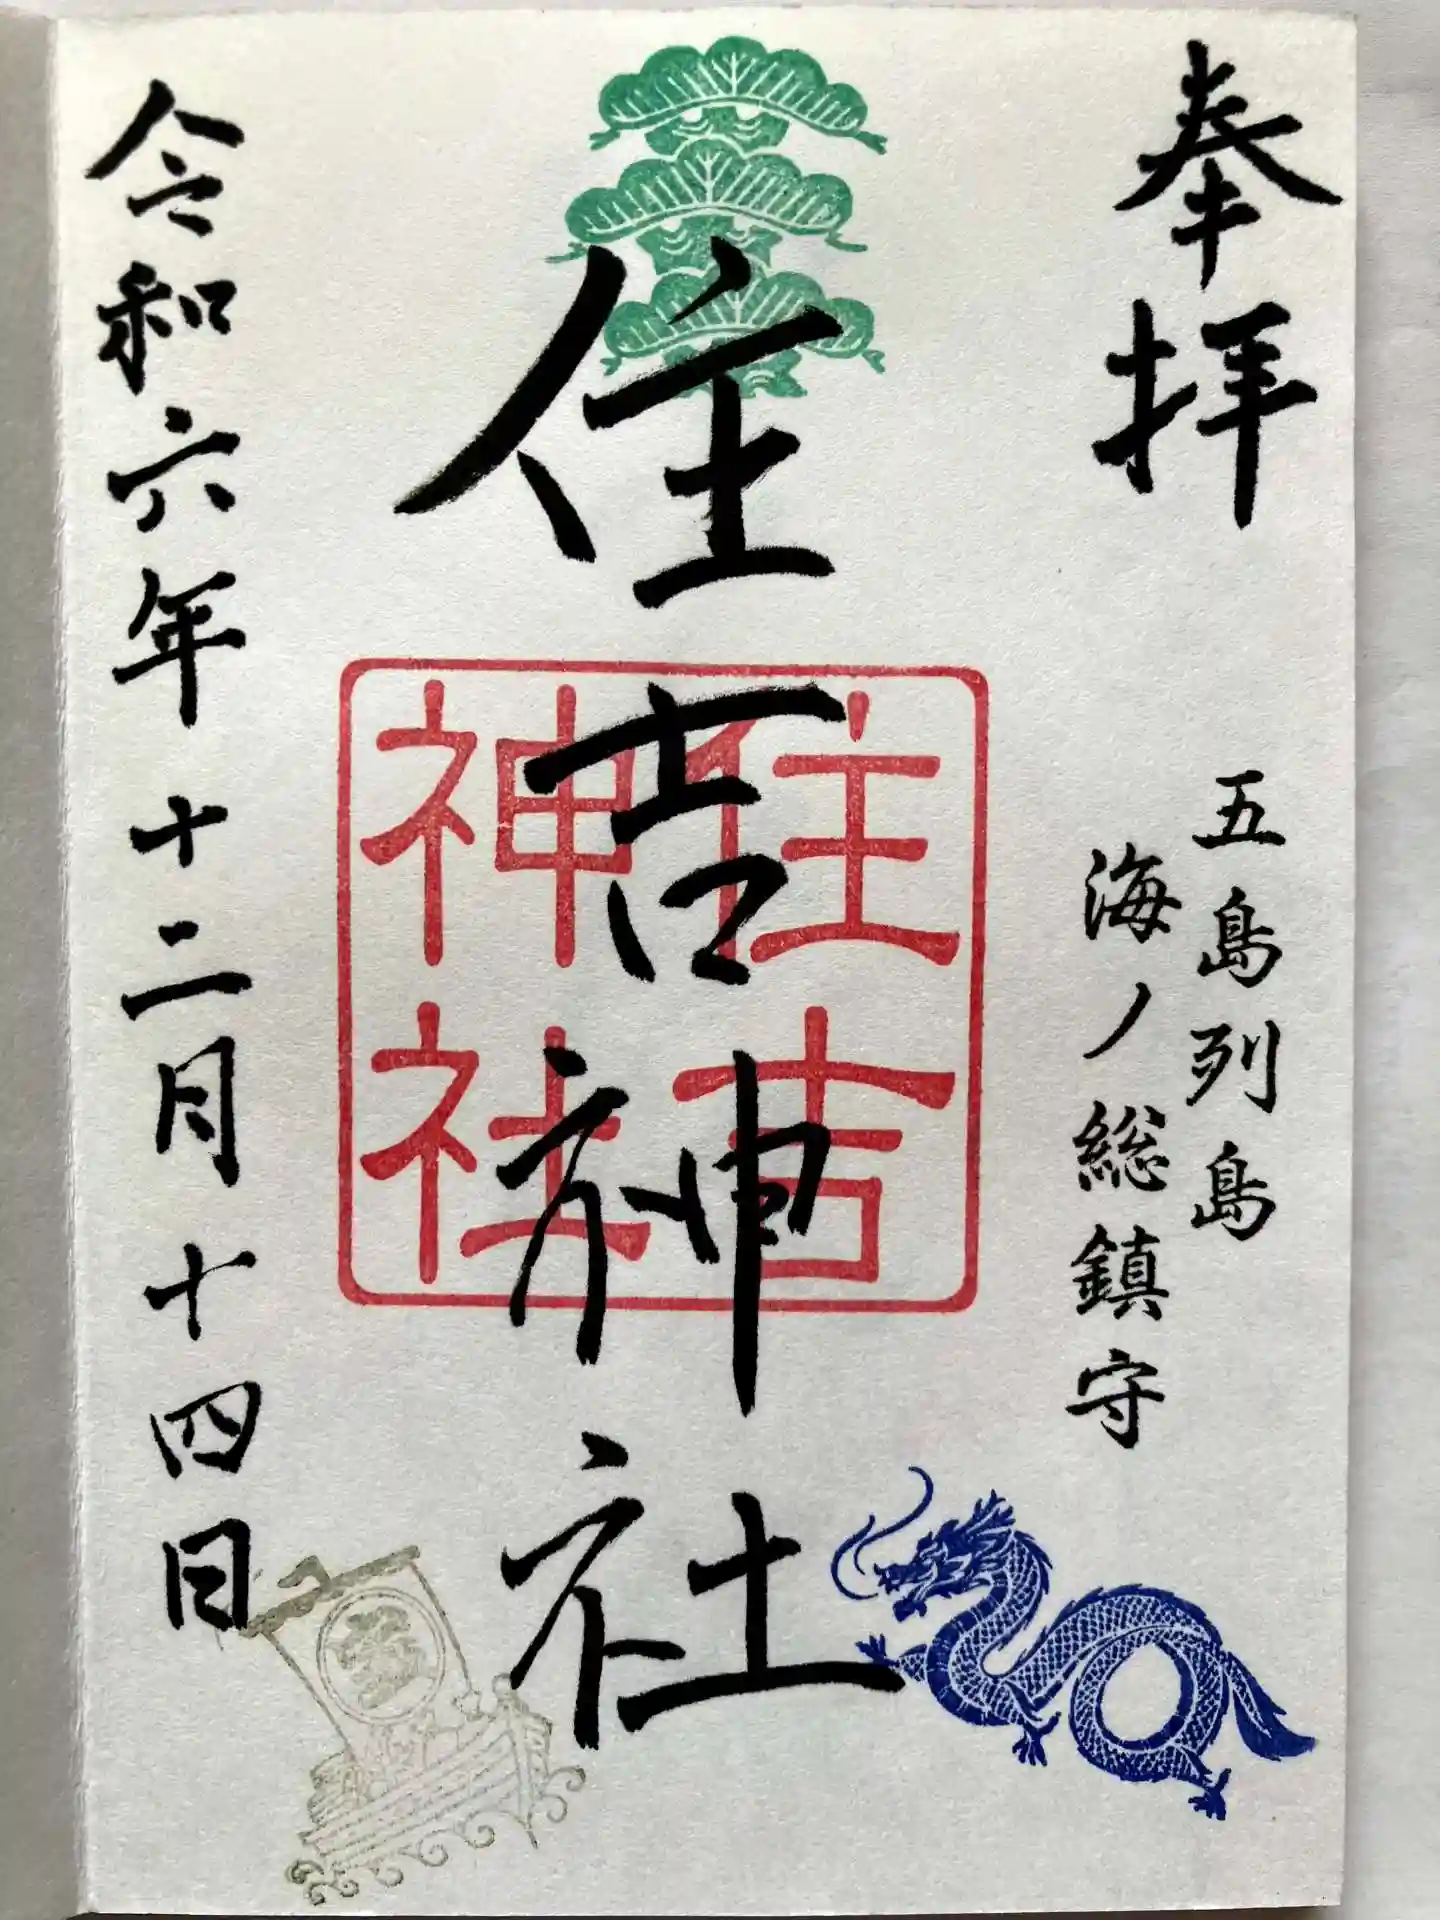 奉拝
五島列島
海ノ総鎮守
住吉神社
住吉
神社
令和六年十二月十四日